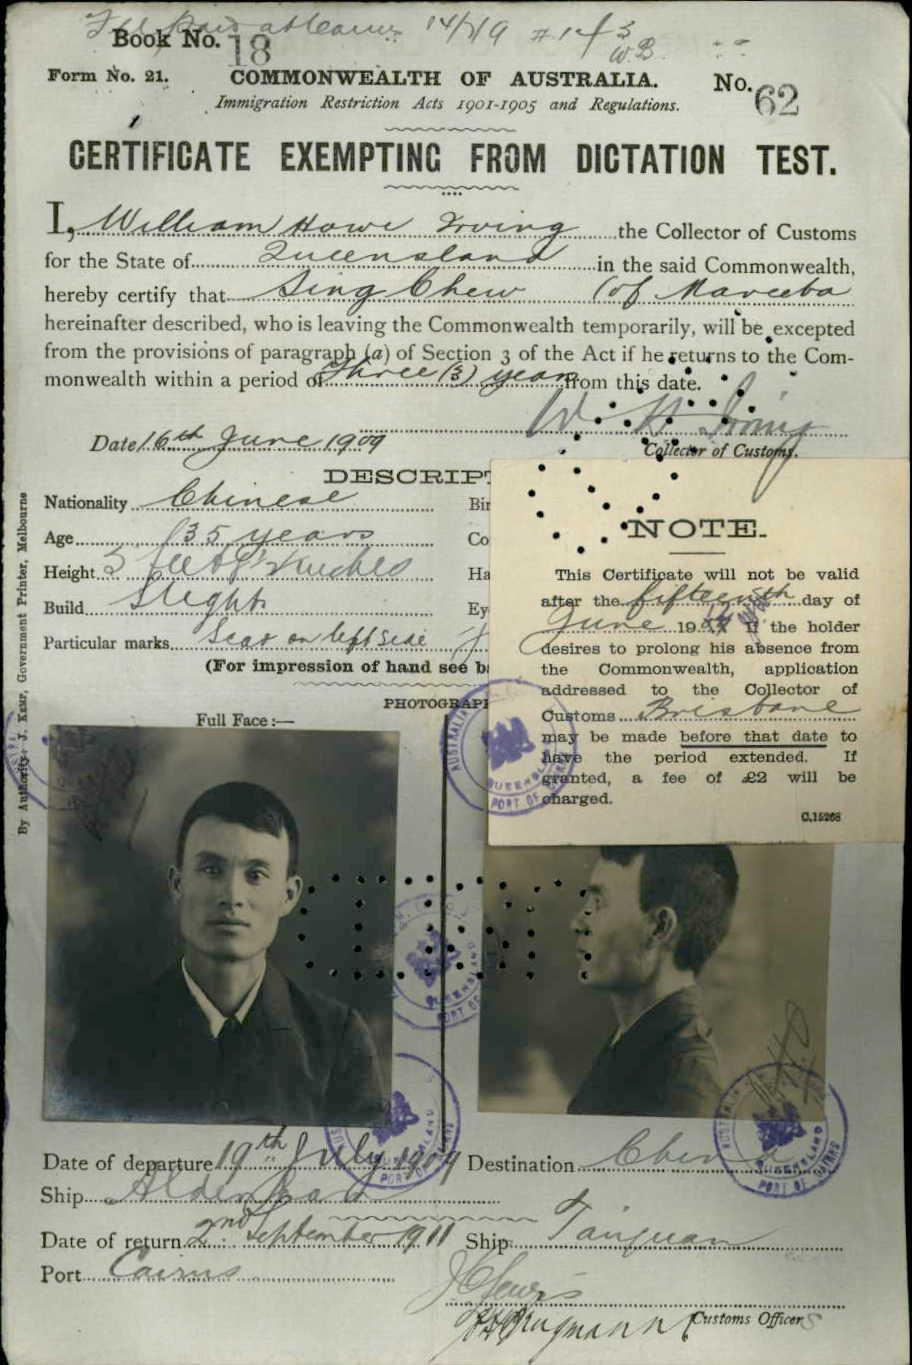 Fee paid at Cairns 14/7/9 #1
Book No. 18
W.B.
Form No. 21. COMMONWEALTH OF AUSTRALIA. No. 62
Immigration Restriction Acts 1901-1905 and Regulations.
CERTIFICATE EXEMPTING FROM DICTATION TEST.
I, William Howe Irving the Collector of Customs
for the State of Queensland in the said Commonwealth,
hereby certify that Sing Chew (of Mareeba
hereinafter described, who is leaving the Commonwealth temporarily, will be excepted
from the provisions of paragraph (a) of Section 3 of the Act if he returns to the Com-
monwealth within a period of Three (3) years from this date.
W H Irving
Date 16th June 1909
Collector of Customs.
DESCRIPT
Nationality Chinese Bir
Age 35 years Co
Height 5 feet Inches Ha
Build Slight Ey
Particular marks Scar on left side
(For impression of hand see b
PHOTOGRAP
Full Face:—
NOTE.
This Certificate will not be valid
after the fifteenth day of
June 19 If the holder
desires to prolong his absence from
the Commonwealth, application
addressed to the Collector of
Customs Brisbane
may be made before that date to
have the period extended. If
granted, a fee of £2 will be
charged.
C.15268
By Authority: J. Kemp, Government Printer, Melbourne
AUSTRALIA
QUEENSLAND
PORT OF CAIRNS
QUEENSLAND
PORT OF
AUSTRALIA
QUEENSLAND
PORT OF CAIRNS
AUSTRALIA
QUEENSLAND
PORT OF CAIRNS
Date of departure 19th July 1909 Destination China
Ship Aldenham
Date of return 2nd September 1911 Ship Taiyuan
Port Cairns
Customs Officer